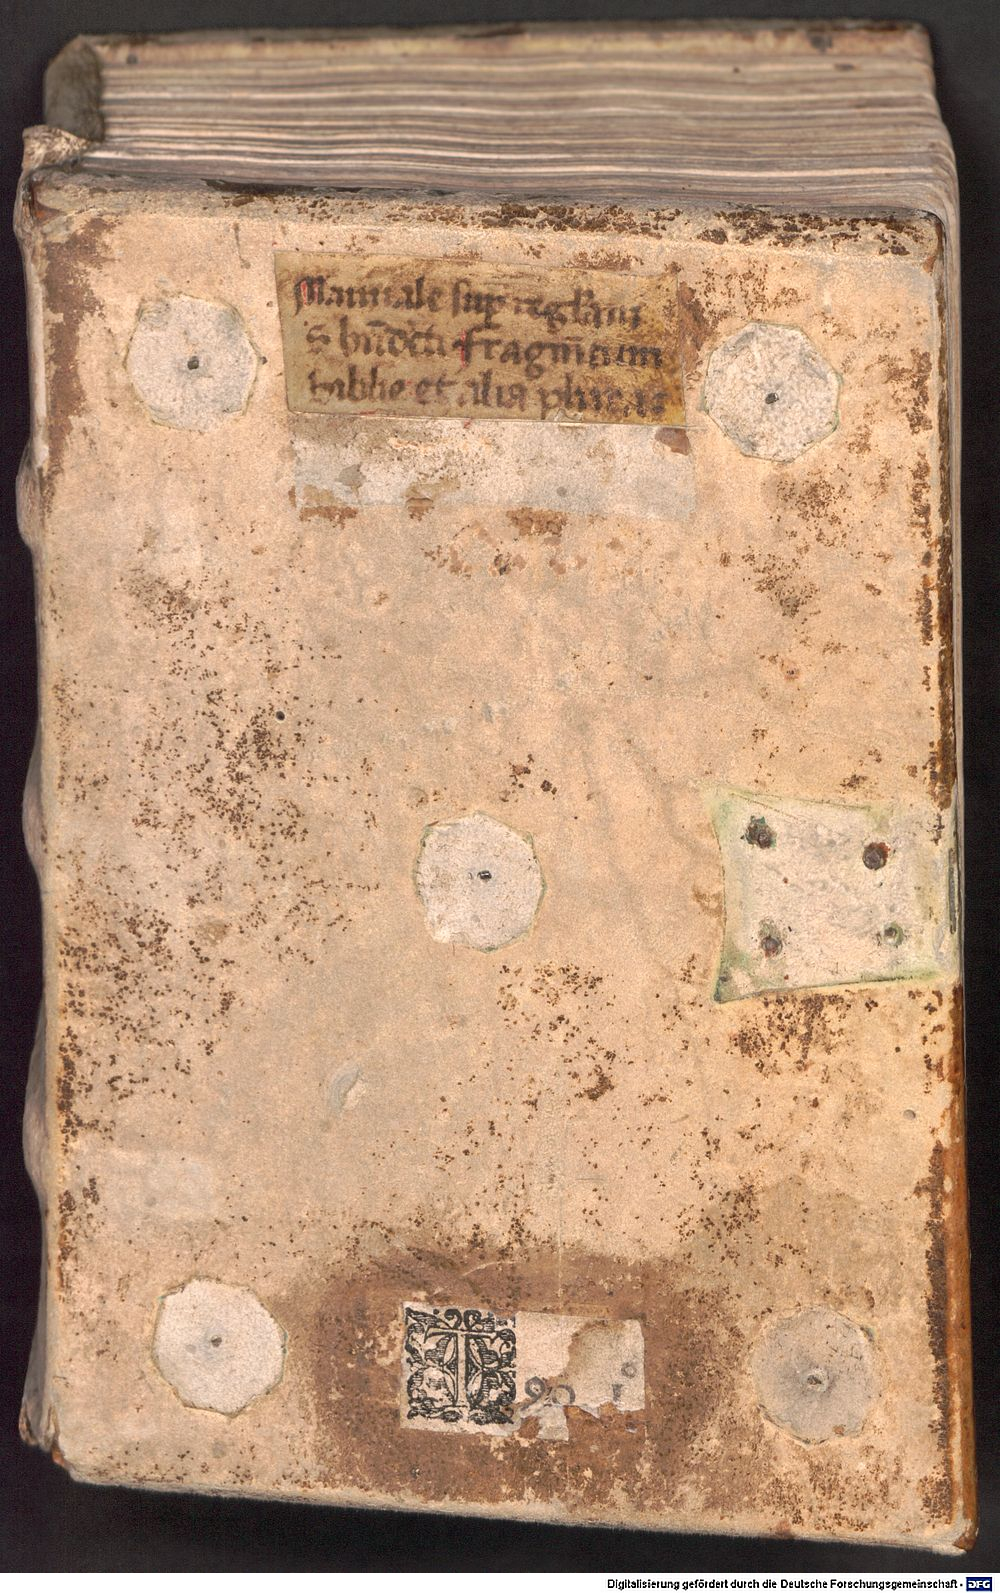 Manuale sup regulam
S bn̄dcti fragmētum
bibbie et alia plura
T
90
Digitalisierung gefördert durch die Deutsche Forschungsgemeinschaft - DFG